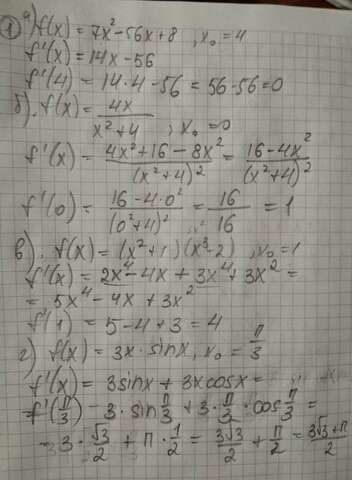 1 а) f(x) = 7x² - 56x + 8, x₀ = 4
f'(x) = 14x - 56
f'(4) = 14·4 - 56 = 56 - 56 = 0
б). f'(x) = 4x / (x² + 4), x₀ = 0
f'(x) = (4x² + 16 - 8x²) / (x² + 4)² = (16 - 4x²) / (x² + 4)²
f'(0) = (16 - 4·0²) / (0² + 4)² = 16 / 16 = 1
в). f(x) = (x² + 1)(x³ - 2), x₀ = 1
f'(x) = 2x⁴ - 4x + 3x⁴ + 3x² =
= 5x⁴ - 4x + 3x²
f'(1) = 5 - 4 + 3 = 4
г) f(x) = 3x · sinx, x₀ = π/3
f'(x) = 3sinx + 3xcosx =
= f'(π/3) = 3·sin π/3 + 3·π/3·cos π/3 =
= 3·√3/2 + π·1/2 = 3√3/2 + π/2 = (3√3 + π)/2